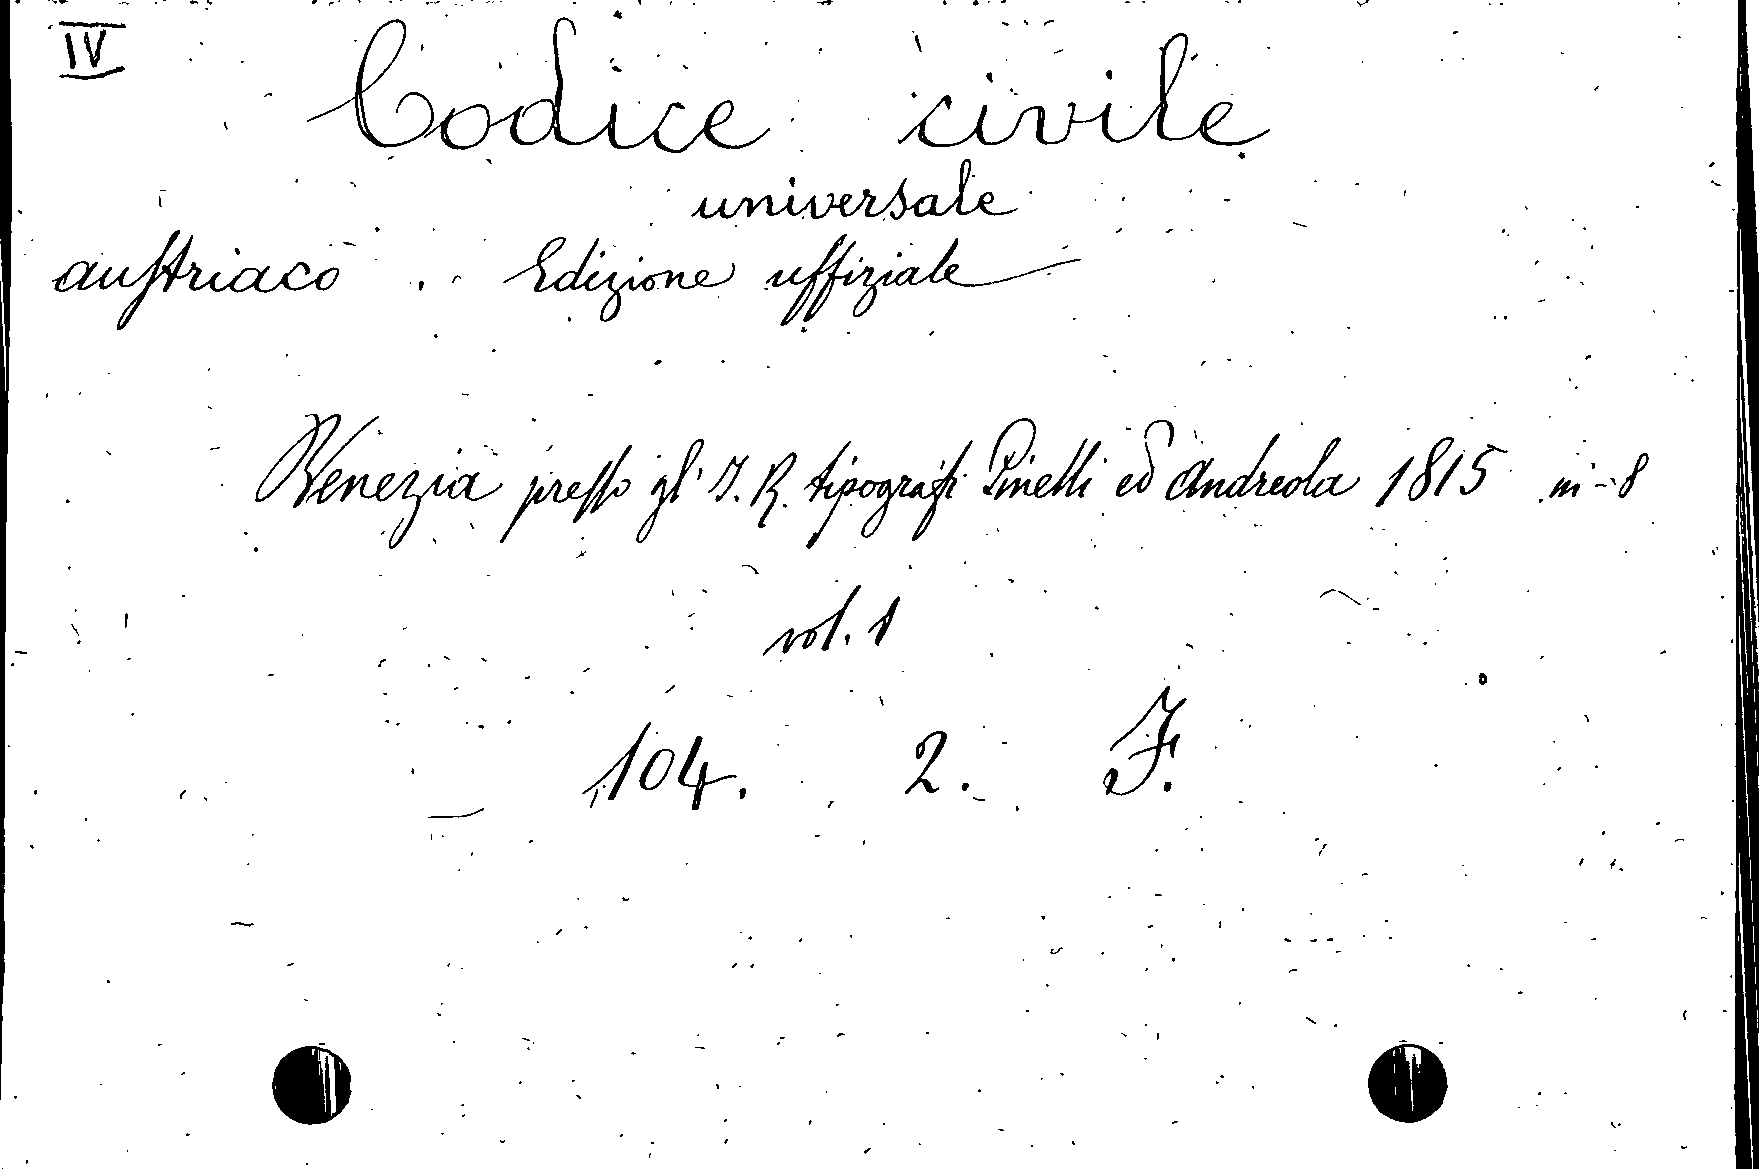 IV
Codice civile
universale
austriaco . Edizione uffiziale
Venezia presso gl' I. R. tipografi Pinelli ed Andreola 1815 in-8
vol. 1
104. 2. F.